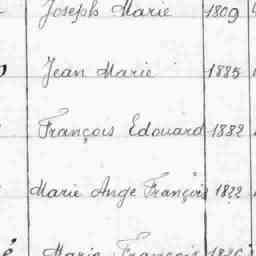 Joseph Marie 1809
Jean Marie 1885
François Edouard 1882
Marie Ange François 1822
Marie François